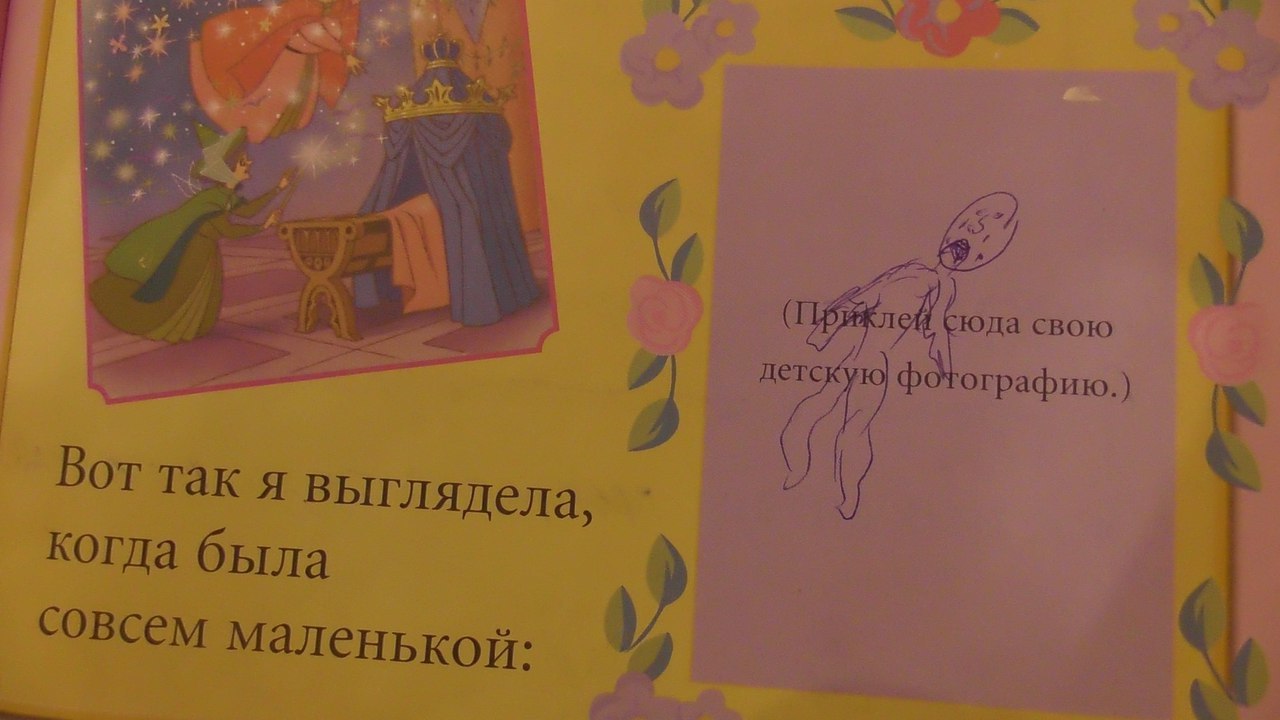 Вот так я выглядела,
когда была
совсем маленькой:
(Приклей сюда свою
детскую фотографию.)